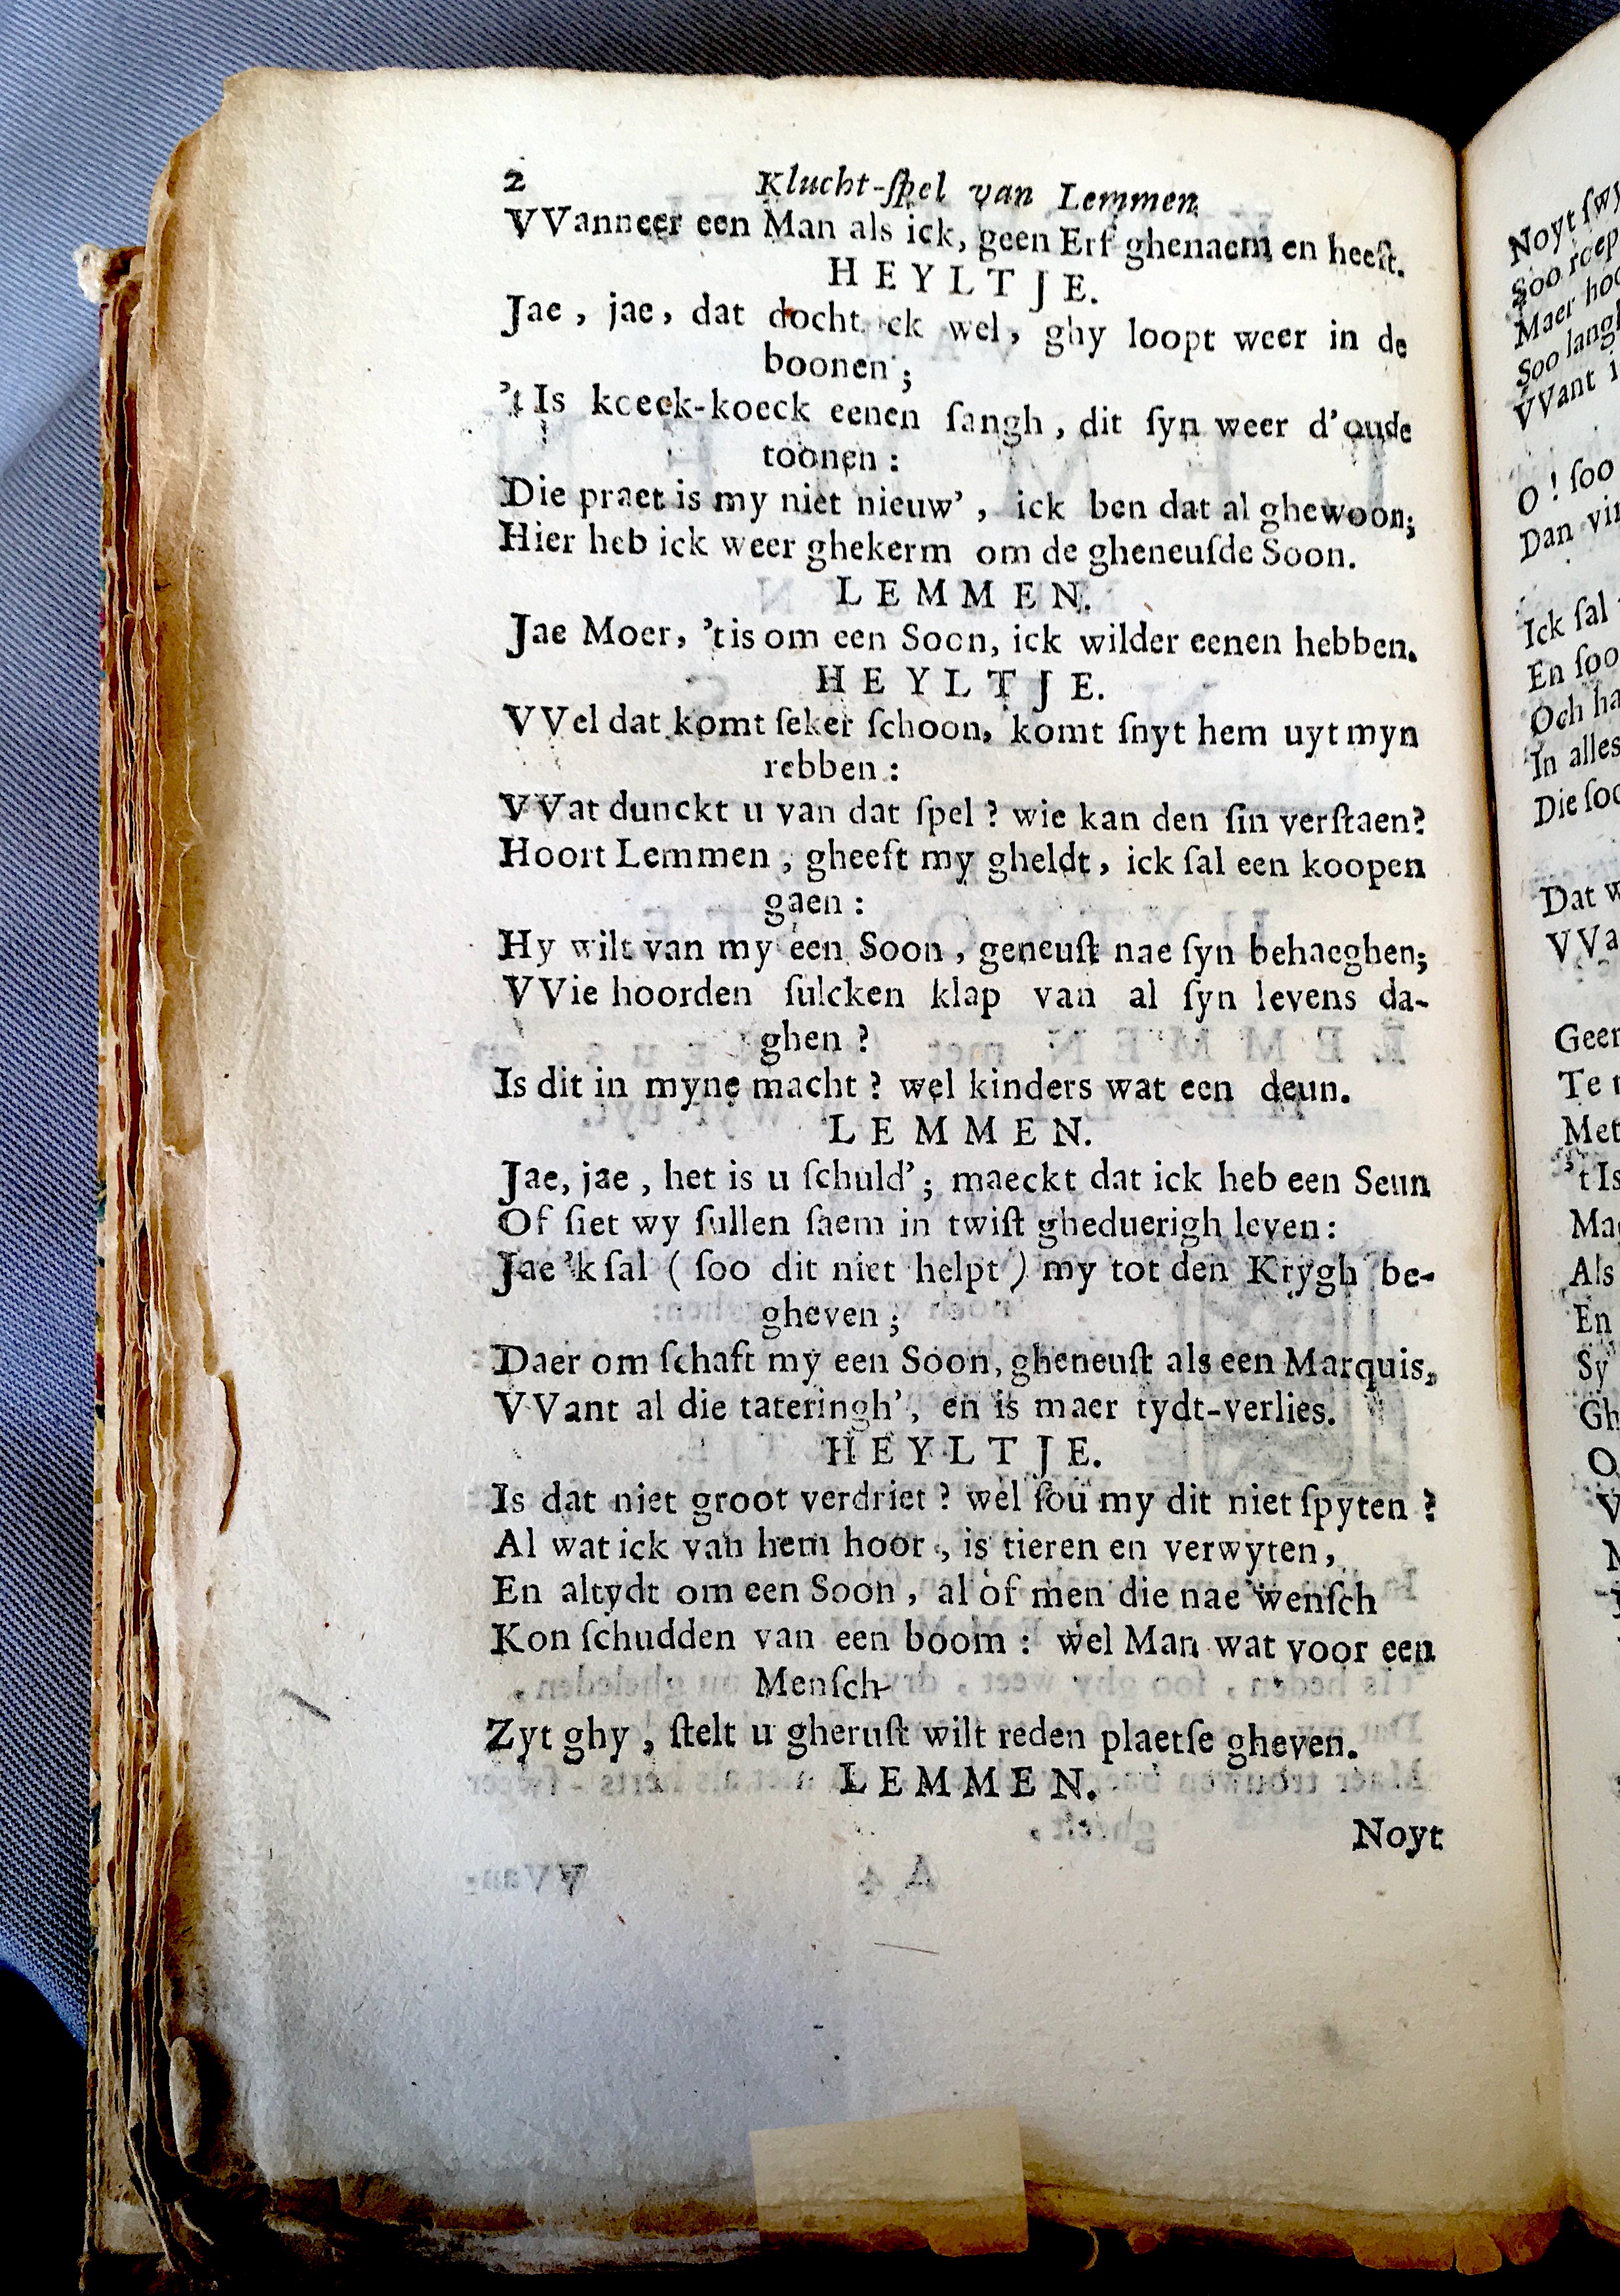 2 Klucht-ſpel van Lemmen
VVanneer een Man als ick, geen Erf ghenaem en heeft.
HEYLTJE.
Jae, jae, dat docht ick wel, ghy loopt weer in de
boonen;
't Is koeck-koeck eenen ſangh, dit ſyn weer d'oude
toonen:
Die praet is my niet nieuw', ick ben dat al ghewoon;
Hier heb ick weer ghekerm om de gheneuſde Soon.
LEMMEN.
Jae Moer, 'tis om een Soon, ick wilder eenen hebben.
HEYLTJE.
VVel dat komt ſeker ſchoon, komt ſnyt hem uyt myn
rebben:
VVat dunckt u van dat ſpel? wie kan den ſin verſtaen?
Hoort Lemmen, gheeft my gheldt, ick ſal een koopen
gaen:
Hy wilt van my een Soon, geneuſt nae ſyn behaeghen;
VVie hoorden ſulcken klap van al ſyn levens da-
ghen?
Is dit in myne macht? wel kinders wat een deun.
LEMMEN.
Jae, jae, het is u ſchuld'; maeckt dat ick heb een Seun
Of ſiet wy ſullen ſaem in twiſt gheduerigh leven:
Jae 'k ſal (ſoo dit niet helpt) my tot den Krygh be-
gheven;
Daer om ſchaft my een Soon, gheneuſt als een Marquis,
VVant al die tateringh', en is maer tydt-verlies.
HEYLTJE.
Is dat niet groot verdriet? wel ſou my dit niet ſpyten?
Al wat ick van hem hoor, is tieren en verwyten,
En altydt om een Soon, al of men die nae wenſch
Kon ſchudden van een boom: wel Man wat voor een
Menſch
Zyt ghy, ſtelt u gheruſt wilt reden plaetſe gheven.
LEMMEN.
Noyt
Noyt
Soo roep
Maer
Soo
VVant
O! ſoo
Dan
Ick ſal
En ſoo
Och
In alles
Die
Dat
Geen
Te
Met
't Is
Als
En
Sy